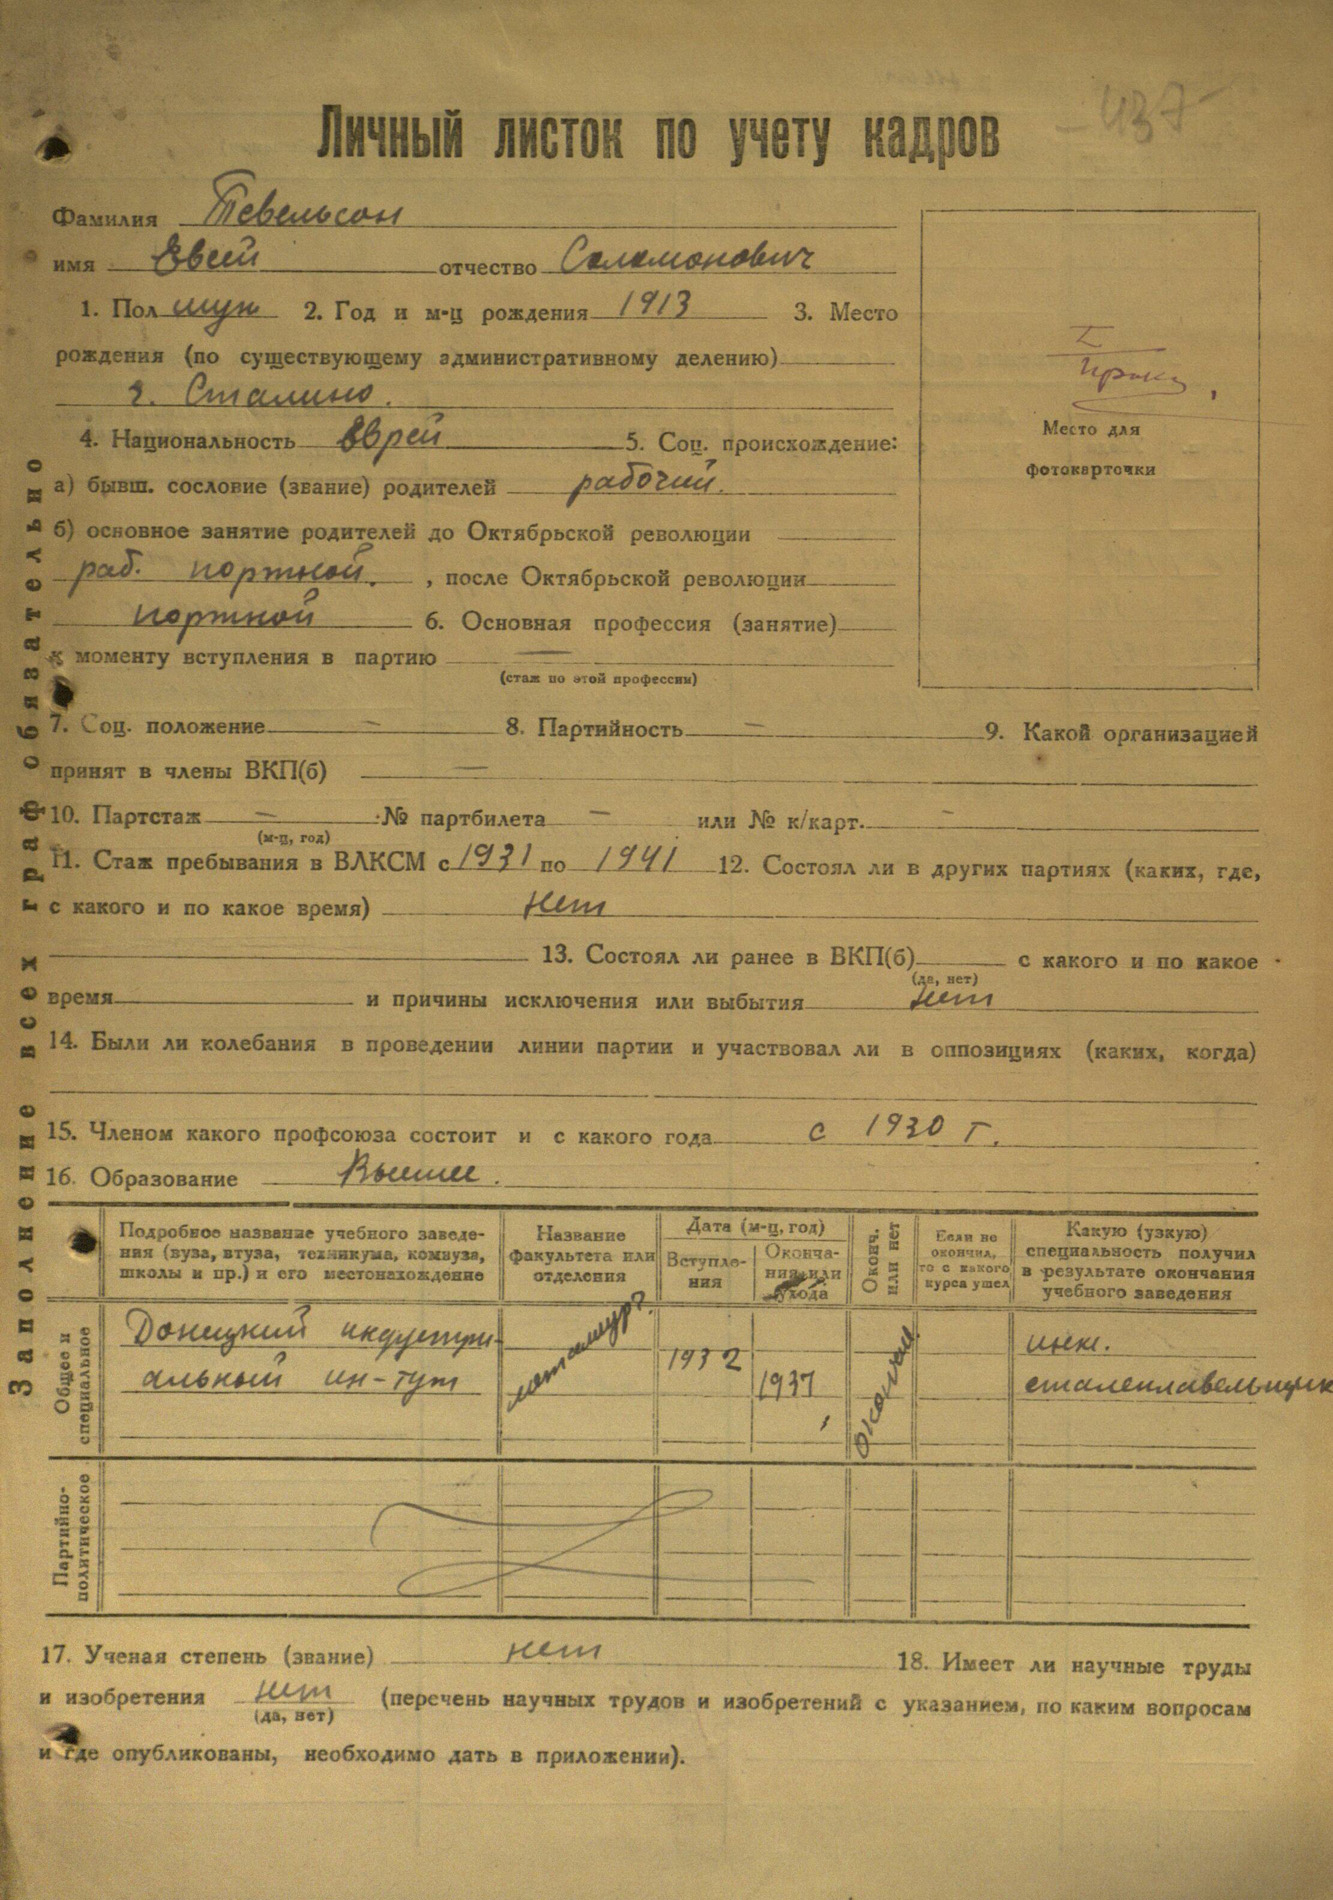 437
Личный листок по учету кадров
Фамилия Тевельсон
имя Евсей отчество Соломонович
1. Пол муж 2. Год и м-ц рождения 1913 3. Место
рождения (по существующему административному делению)
г. Сталино.
4. Национальность еврей 5. Соц. происхождение:
а) бывш. сословие (звание) родителей рабочий.
б) основное занятие родителей до Октябрьской революции
раб. портной. , после Октябрьской революции
портной 6. Основная профессия (занятие)
к моменту вступления в партию —
(стаж по этой профессии)
Место для
фотокарточки
7. Соц. положение — 8. Партийность — 9. Какой организацией
принят в члены ВКП(б) —
10. Партстаж — № партбилета — или № к/карт. —
(м-ц, год)
11. Стаж пребывания в ВЛКСМ с 1931 по 1941 12. Состоял ли в других партиях (каких, где,
с какого и по какое время) нет
13. Состоял ли ранее в ВКП(б) с какого и по какое
(да, нет)
время и причины исключения или выбытия нет
14. Были ли колебания в проведении линии партии и участвовал ли в оппозициях (каких, когда)
15. Членом какого профсоюза состоит и с какого года с 1930 г.
16. Образование Высшее.
Заполнение всех граф обязательно
Подробное название учебного заведе-
ния (вуза, втуза, техникума, комвуза,
школы и пр.) и его местонахождение
Название
факультета или
отделения
Дата (м-ц, год)
Вступле-
ния
Оконча-
ния или
ухода
Оконч.
или нет
Если не
окончил,
то с какого
курса ушел
Какую (узкую)
специальность получил
в результате окончания
учебного заведения
Общее и
специальное
Донецкий индустри-
альный ин-тут
металлург.
1932
1937
окончил
инж.
сталеплавельщик
Партийно-
политическое
17. Ученая степень (звание) нет 18. Имеет ли научные труды
и изобретения нет (перечень научных трудов и изобретений с указанием, по каким вопросам
(да, нет)
и где опубликованы, необходимо дать в приложении).